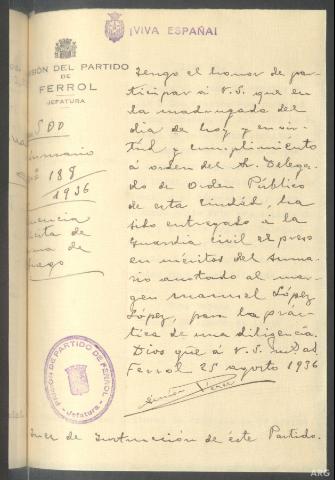 ¡VIVA ESPAÑA!
PRISIÓN DEL PARTIDO
DE
FERROL
JEFATURA
500
Sumario
nº 188
1936
Tengo el honor de par-
ticipar á V.S. que en
la madrugada del
dia de hoy y en vir-
tud y cumplimiento
á orden del Sr. Delega-
do de Orden Público
de esta Ciudad, ha
sido entregado á la
Guardia Civil el preso
en méritos del Suma-
rio anotado al mar-
gen Manuel López
López, para la prác-
tica de una diligencia.
Dios gue á V.S. ms. as.
Ferrol 25 agosto 1936
PRISION DE PARTIDO DE FERROL
Jefatura
Juez de Instrucción de éste Partido.
ARG